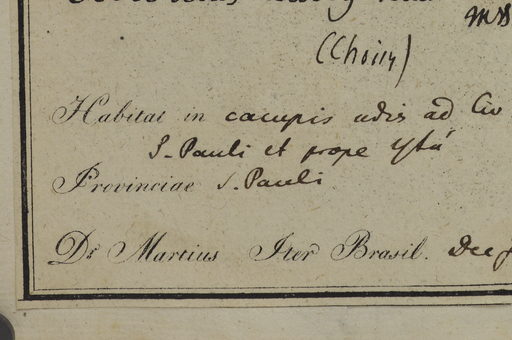 mss
(Choisy)
Habitat in campis udis ad Civ
S. Pauli et prope Ytú
Provinciae S. Pauli
Dr. Martius Iter Brasil. Dec